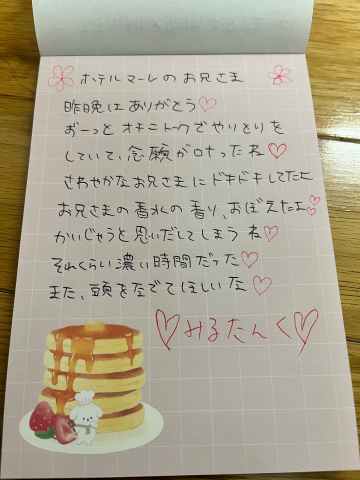 ホテルマーレのお兄さま
昨晩はありがとう♡
ずーっとオキニトークでやりとりを
していて、念願が叶ったね♡
さわやかなお兄さまにドキドキしてたよ
お兄さまの香水の香り、おぼえたよ♡
かいじゅうと思いだしてしまうね♡
それくらい濃い時間だった♡
また、頭をなでてほしいな♡
♡みるたんく♡